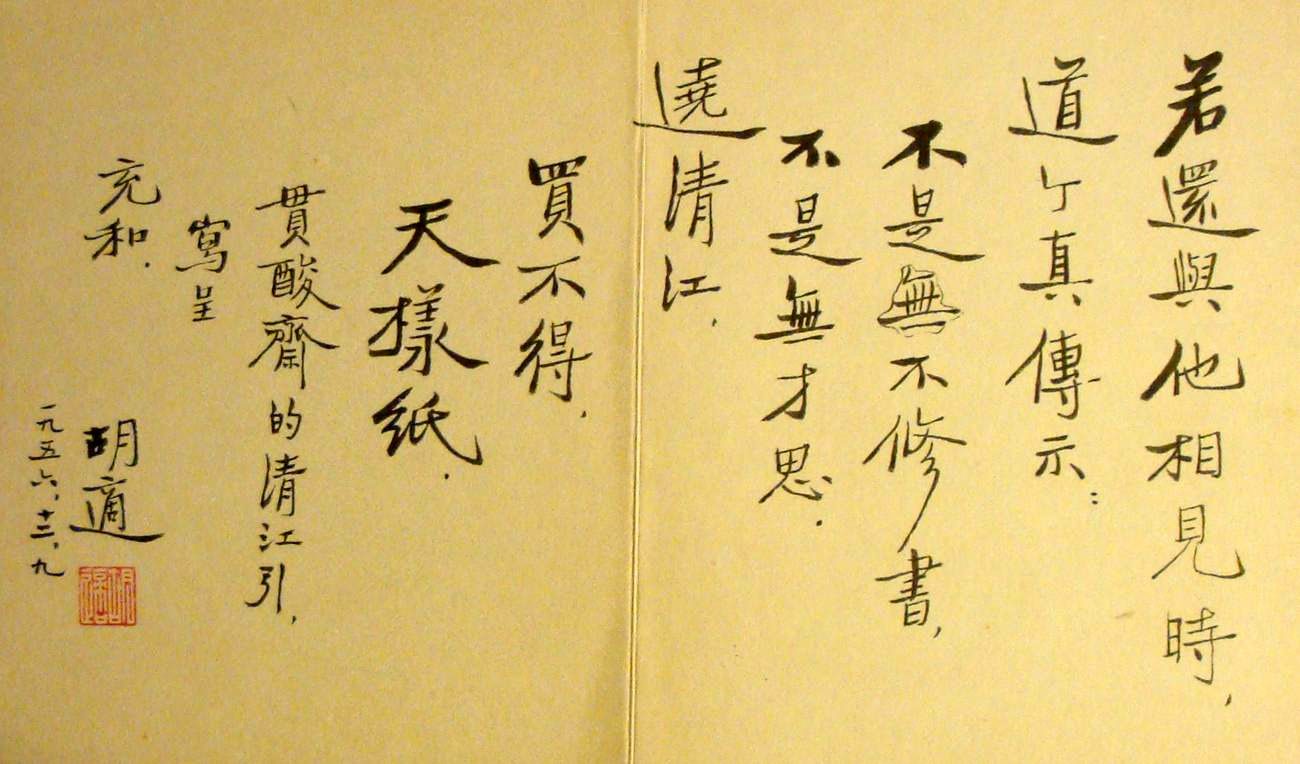 若還與他相見時,
道亇真傳示:
不是無不修書,
不是無才思.
遶清江,
買不得,
天樣紙.
貫酸齋的清江引,
寫呈
充和.
胡適
一九五六,十二,九